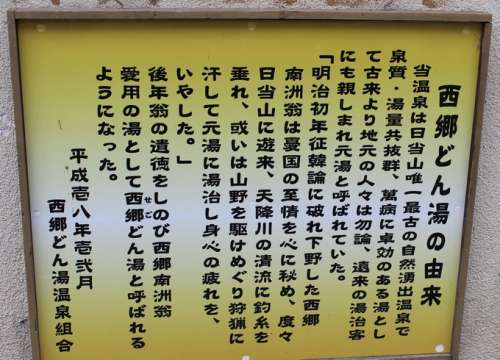 西郷どん湯の由来
当温泉は日当山唯一最古の自然湧出温泉で
泉質・湯量共抜群、萬病に卓効のある湯とし
て古来より地元の人々は勿論、遠来の湯治客
にも親しまれ元湯と呼ばれていた。
「明治初年征韓論に破れ下野した西郷
南洲翁は憂国の至情を心に秘め、度々
日当山に遊来、天降川の清流に釣糸を
垂れ、或いは山野を駆けめぐり狩猟に
汗して元湯に湯治し身心の疲れを、
いやした。」
後年翁の遺徳をしのび西郷南洲翁
愛用の湯として西郷どん湯と呼ばれる
せご
ようになった。
平成壱八年壱弐月
西郷どん湯温泉組合